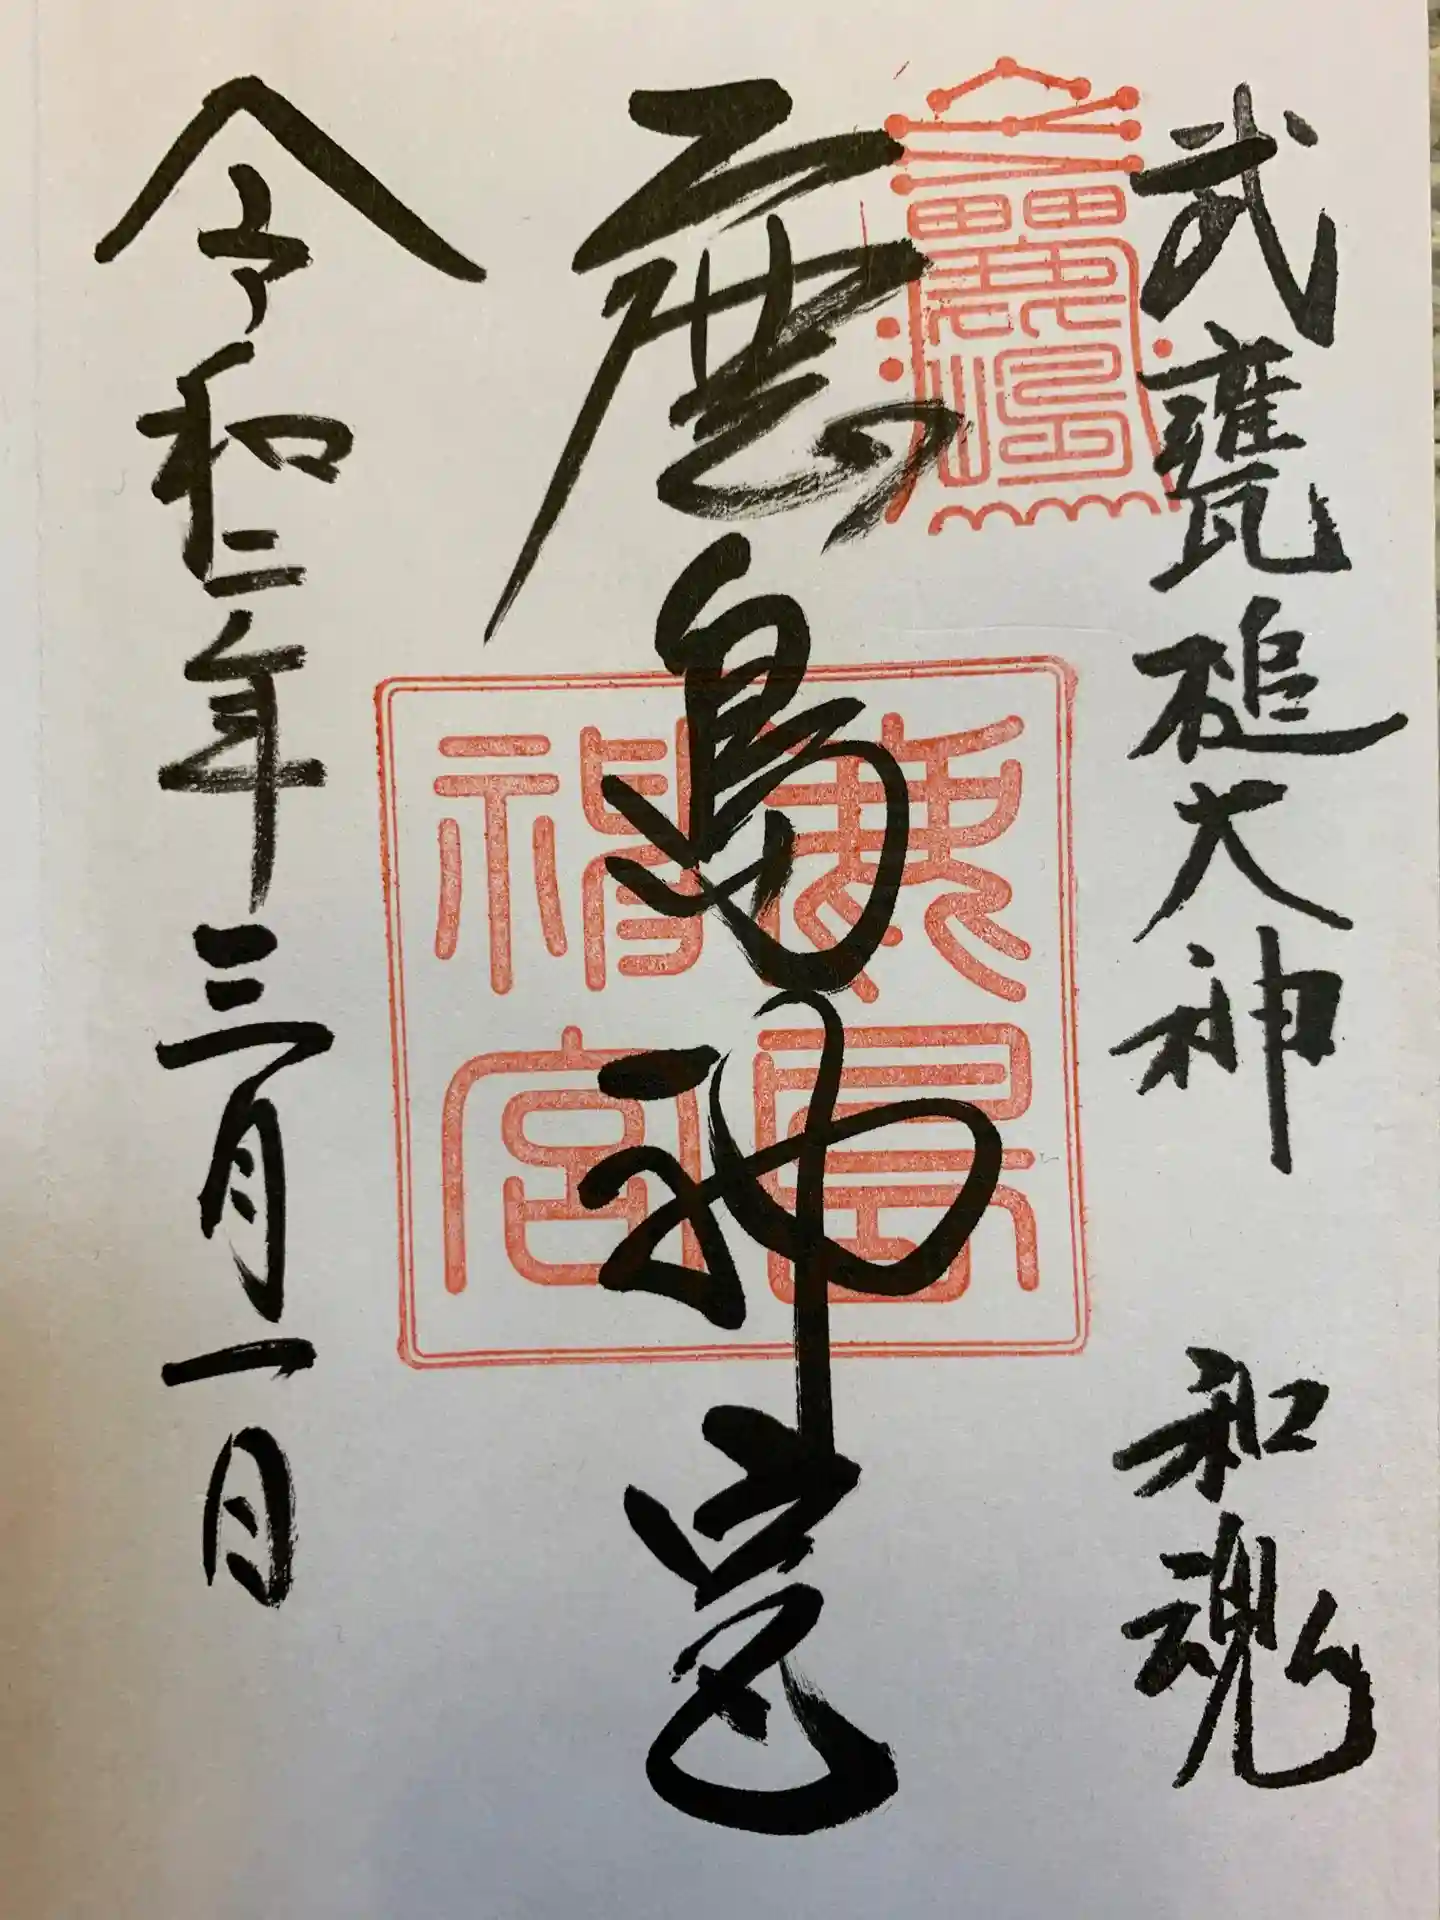 武甕槌大神　和魂
鹿島神宮
鹿島神宮
令和二年三月一日